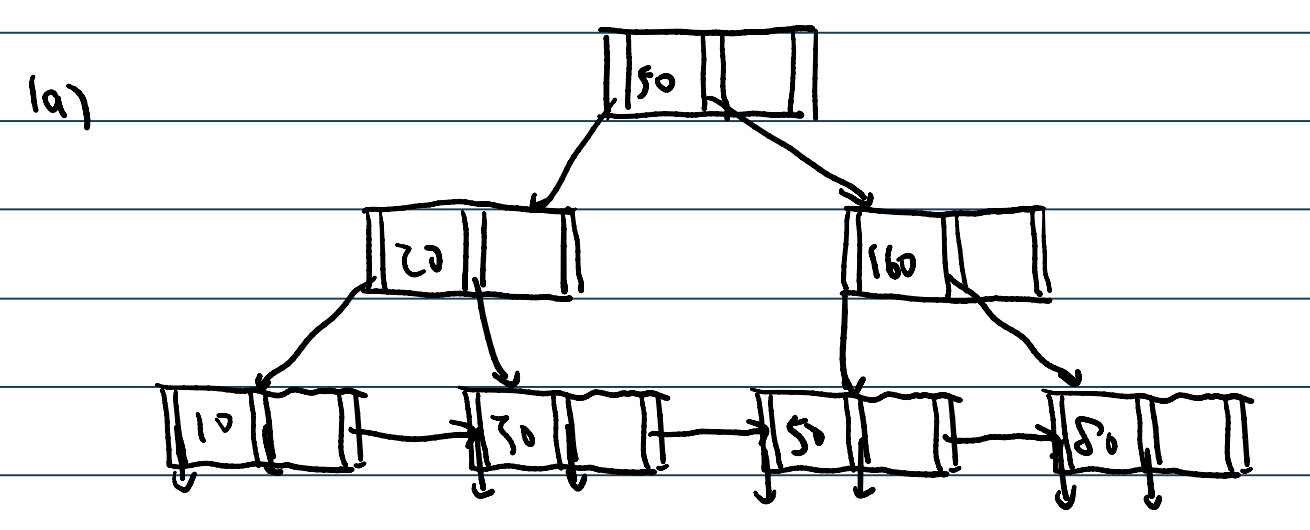 1a)
50
20 160
10 30 50 80